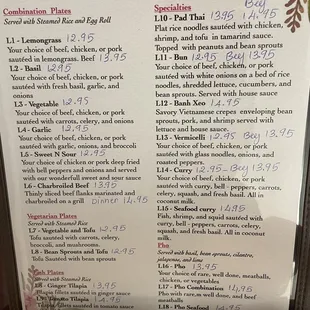 Combination Plates
Served with Steamed Rice and Egg Roll
L1 - Lemongrass 12.95
Your choice of beef, chicken, or pork
sautéed in lemongrass. Beef 13.95
L2 - Basil 12.95
Your choice of beef, chicken, or pork
sautéed with fresh basil, garlic, and
onions
L3 - Vegetable 12.95
Your choice of beef, chicken, or pork
sautéed with carrots, celery, and onions
L4 - Garlic 12.95
Your choice of beef, chicken, or pork
sautéed with garlic, onions, and broccoli
L5 - Sweet N Sour 12.95
Your choice of chicken or pork deep fried
with bell peppers and onions and served
with our wonderful sweet and sour sauce
L6 - Charbroiled Beef 13.95
Thinly sliced beef flanks marinated and
charbroiled on a grill Dinner 14.95
Vegetarian Plates
Served with Steamed Rice
L7 - Vegetable and Tofu 12.95
Tofu sautéed with carrots, celery,
broccoli, and mushrooms.
L8 - Bean Sprouts and Tofu 12.95
Tofu Sautéed with bean sprouts
Fish Plates
Served with Steamed Rice
L8 - Ginger Tilapia 13.95
Tilapia fillets sautéed in ginger sauce
Tomato Tilapia 14.95
Tilapia fillets sautéed in tomato sauce
Specialties
Beef
L10 - Pad Thai 13.95 14.95
Flat rice noodles sautéed with chicken,
shrimp, and tofu in tamarind sauce.
Topped with peanuts and bean sprouts
L11 - Bun 12.95 Beef 13.95
Your choice of beef, chicken, or pork
sautéed with white onions on a bed of rice
noodles, shredded lettuce, cucumbers, and
bean sprouts. Served with house sauce
L12 - Banh Xeo 14.95
Savory Vietnamese crepes enveloping bean
sprouts, pork, and shrimp served with
lettuce and house sauce.
L13 - Vermicelli 12.95 Beef 13.95
Your choice of beef, chicken, or pork
sautéed with glass noodles, onions, and
roasted peppers.
L14 - Curry 12.95 - Beef 13.95
Your choice of beef, chicken, or pork
sautéed with curry, bell - peppers, carrots,
celery, squash, and fresh basil. All in
coconut milk.
L15 - Seafood curry 14.95
Fish, shrimp, and squid sautéed with
curry, bell - peppers, carrots, celery,
squash, and fresh basil. All in coconut
milk.
Pho
Served with basil, bean sprouts, cilantro,
jalapeno, and lime
L16 - Pho 13.95
Your choice of rare, well done, meatballs,
chicken, or vegetables
L17 - Pho Combination 14.95
Pho with rare, well done, and beef
meatballs
L18 - Pho Seafood 14.95